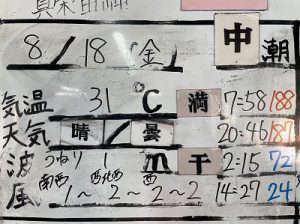 8/18(金) 中潮
気温 31℃ 満 7:58 188
天気 晴/曇 20:46 187
波 うねり 1 m 干 2:15 72
南西 西北西 西
風 1〜2〜2〜2 14:27 24